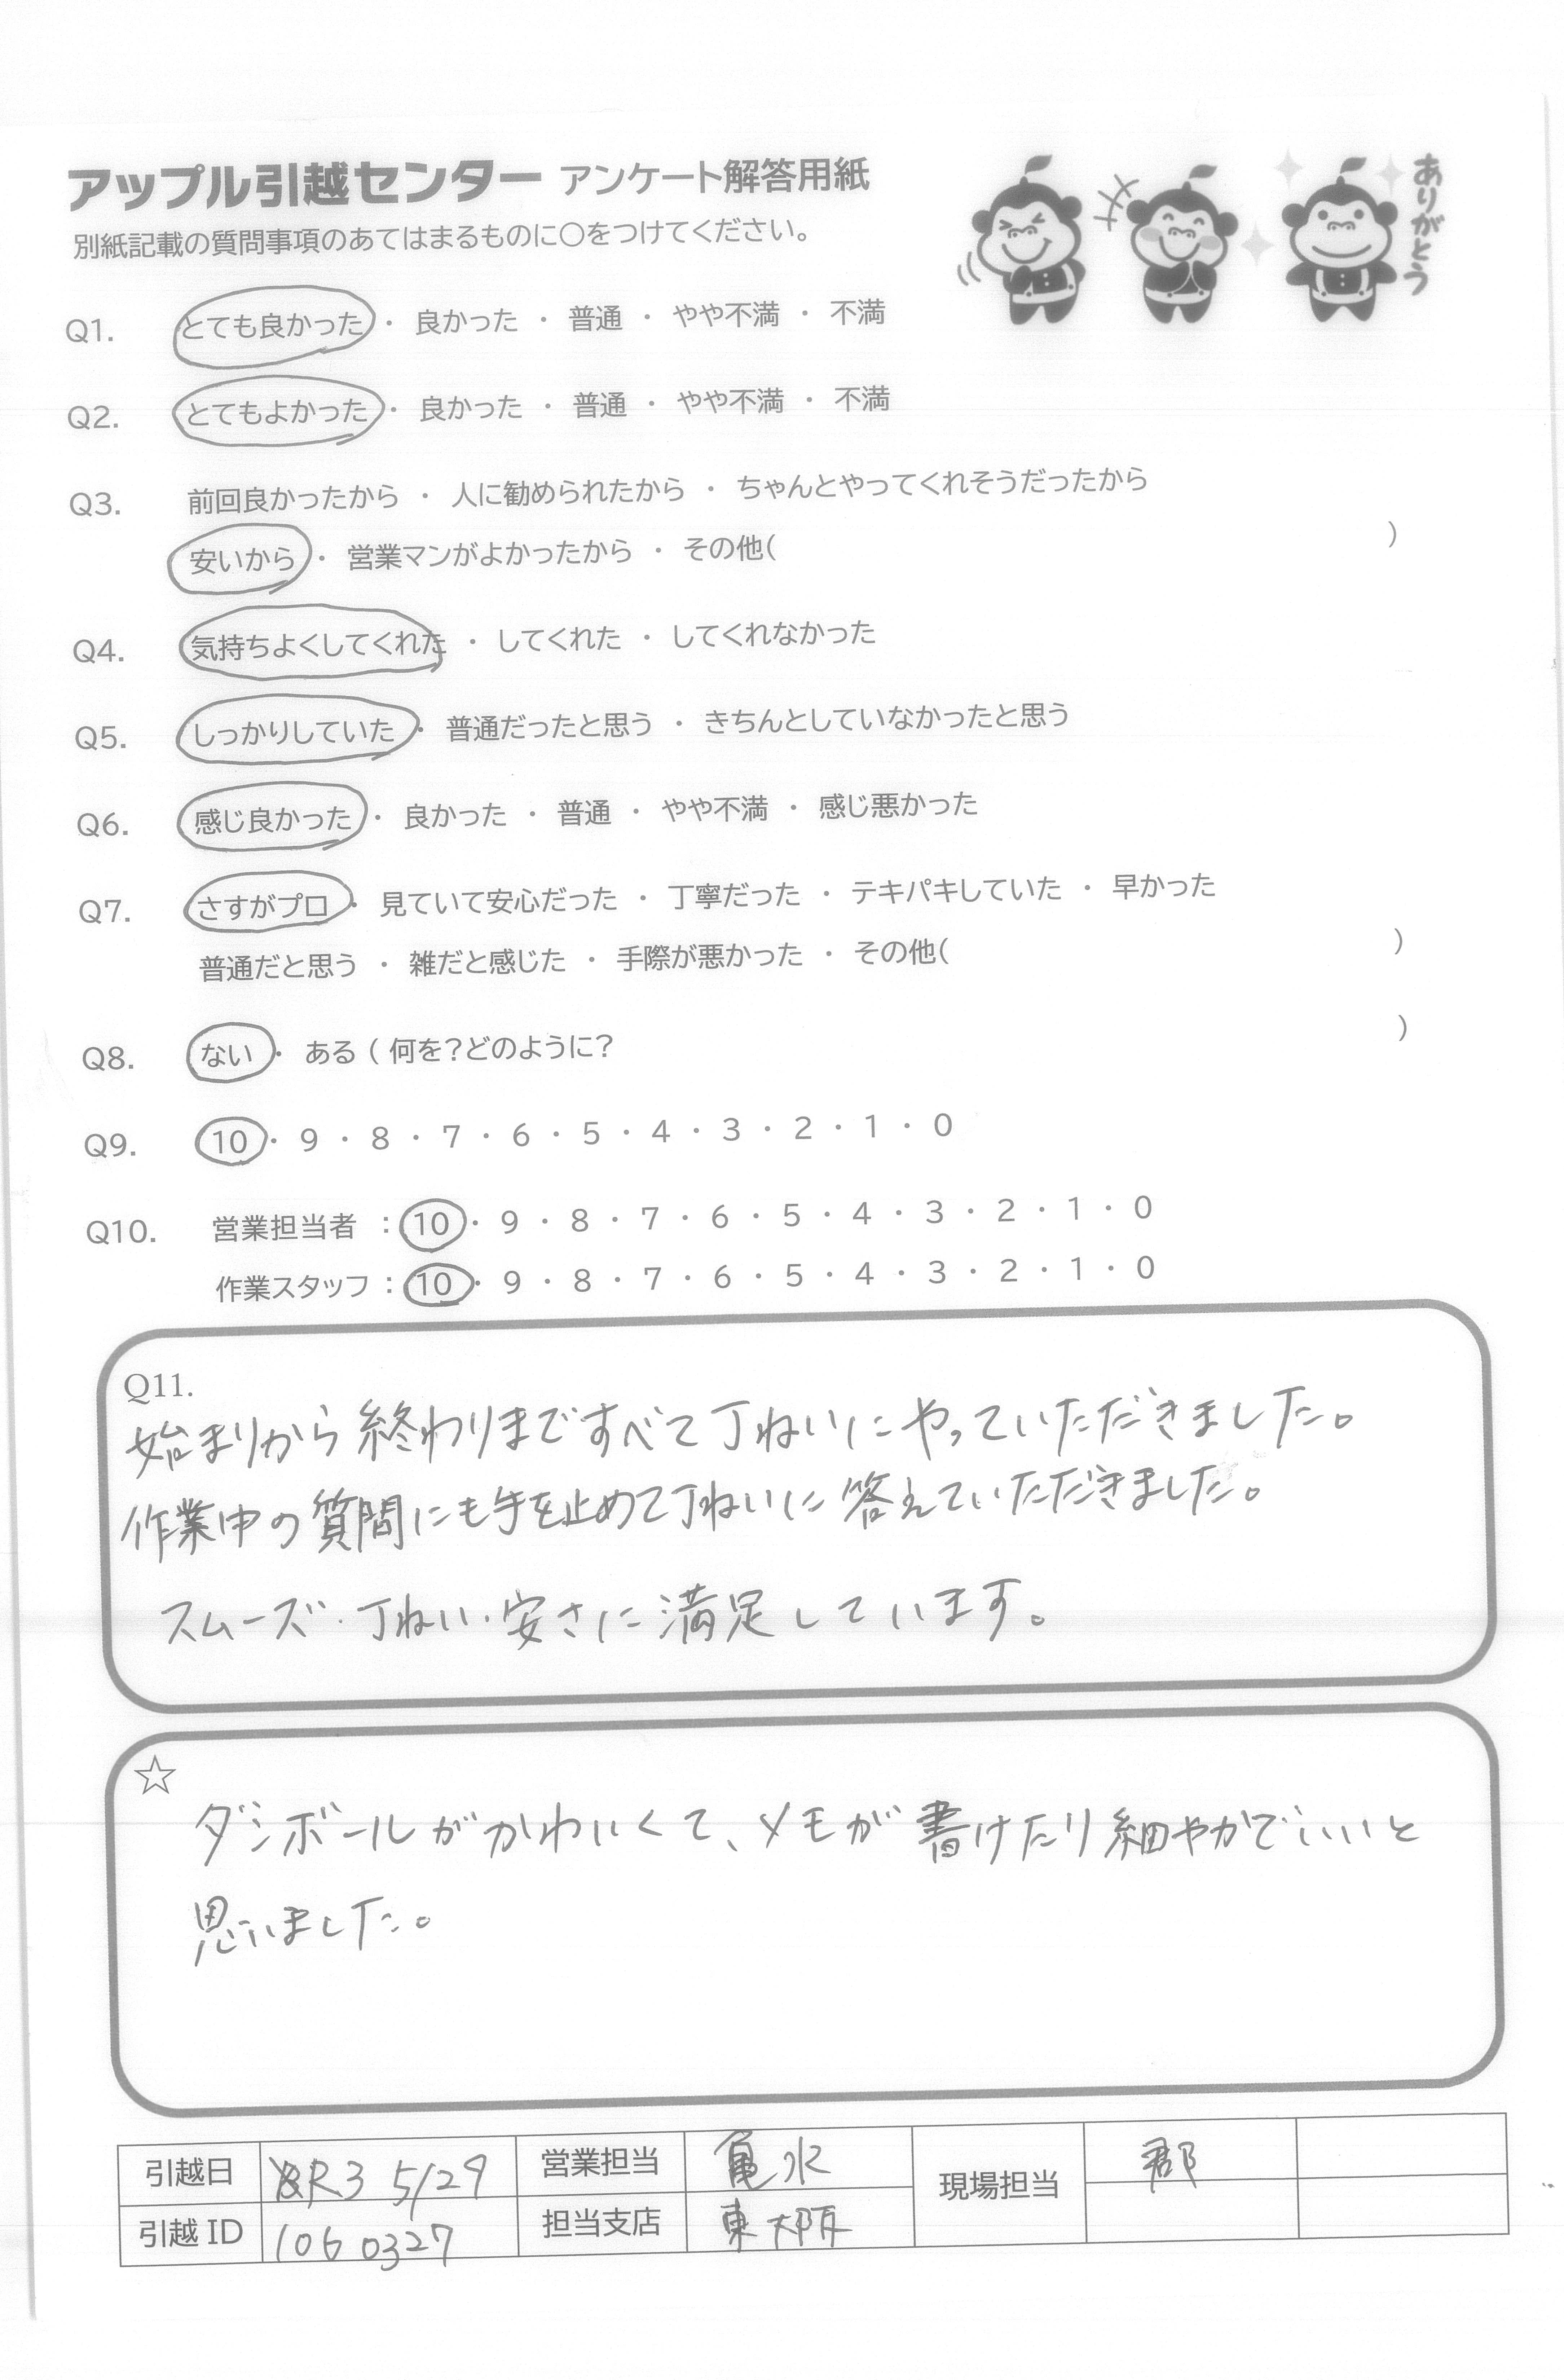 アップル引越センター アンケート解答用紙
ありがとう
別紙記載の質問事項のあてはまるものに〇をつけてください。
Q1. とても良かった ・ 良かった ・ 普通 ・ やや不満 ・ 不満
Q2. とてもよかった ・ 良かった ・ 普通 ・ やや不満 ・ 不満
Q3. 前回良かったから ・ 人に勧められたから ・ ちゃんとやってくれそうだったから
安いから ・ 営業マンがよかったから ・ その他( )
Q4. 気持ちよくしてくれた ・ してくれた ・ してくれなかった
Q5. しっかりしていた ・ 普通だったと思う ・ きちんとしていなかったと思う
Q6. 感じ良かった ・ 良かった ・ 普通 ・ やや不満 ・ 感じ悪かった
Q7. さすがプロ ・ 見ていて安心だった ・ 丁寧だった ・ テキパキしていた ・ 早かった
普通だと思う ・ 雑だと感じた ・ 手際が悪かった ・ その他( )
Q8. ない ・ ある ( 何を?どのように? )
Q9. 10 ・ 9 ・ 8 ・ 7 ・ 6 ・ 5 ・ 4 ・ 3 ・ 2 ・ 1 ・ 0
Q10. 営業担当者 : 10 ・ 9 ・ 8 ・ 7 ・ 6 ・ 5 ・ 4 ・ 3 ・ 2 ・ 1 ・ 0
作業スタッフ : 10 ・ 9 ・ 8 ・ 7 ・ 6 ・ 5 ・ 4 ・ 3 ・ 2 ・ 1 ・ 0
Q11.
始まりから終わりまですべて丁ねいにやっていただきました。
作業中の質問にも手を止めて丁ねいに答えていただきました。
スムーズ・丁ねい・安さに満足しています。
☆
ダンボールがかわいくて、メモが書けたり細やかでいいと
思いました。
引越日 R3 5/29 営業担当 亀水 現場担当 郡
引越 ID 1060327 担当支店 東大阪